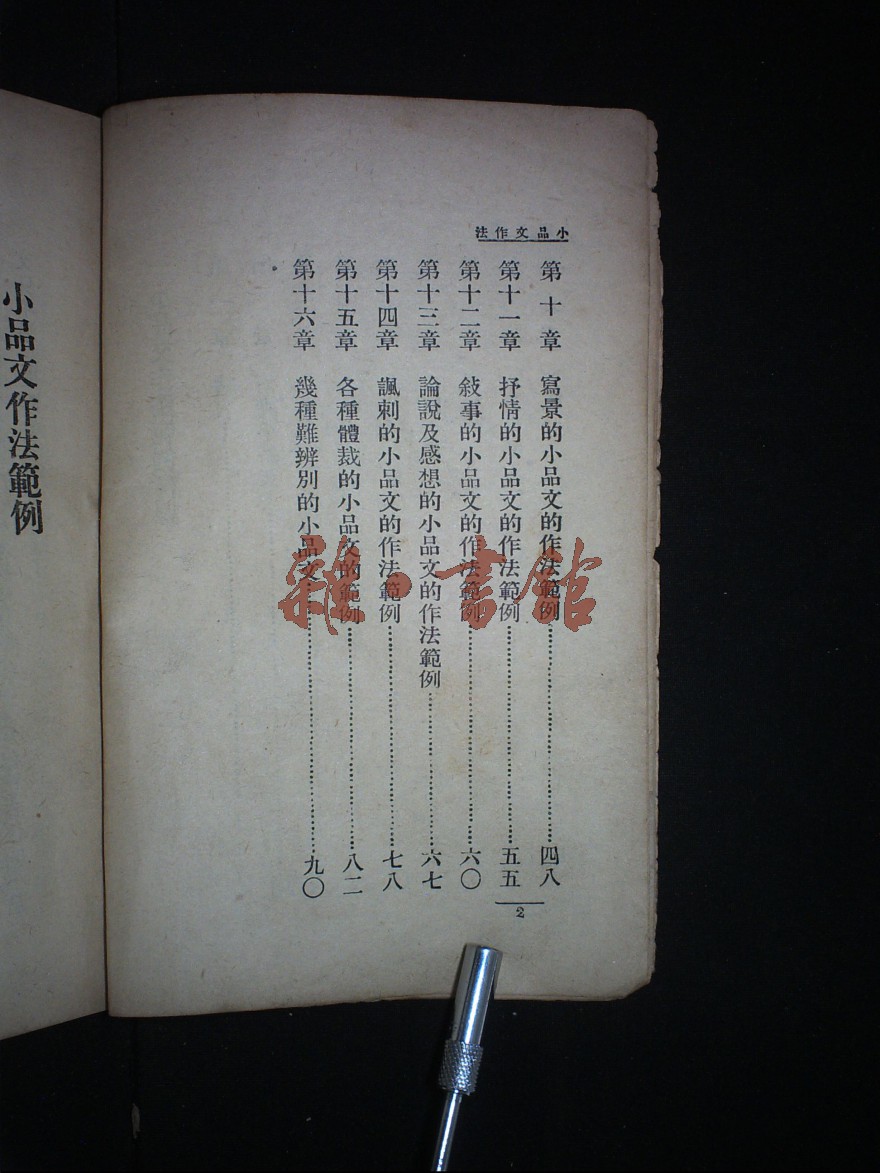 小品文作法
第十章 寫景的小品文的作法範例……四八
第十一章 抒情的小品文的作法範例……五五
第十二章 敍事的小品文的作法範例……六〇
第十三章 論說及感想的小品文的作法範例……六七
第十四章 諷刺的小品文的作法範例……七八
第十五章 各種體裁的小品文的範例……八二
第十六章 幾種難辨別的小品文……九〇
2
小品文作法範例
雜·書館